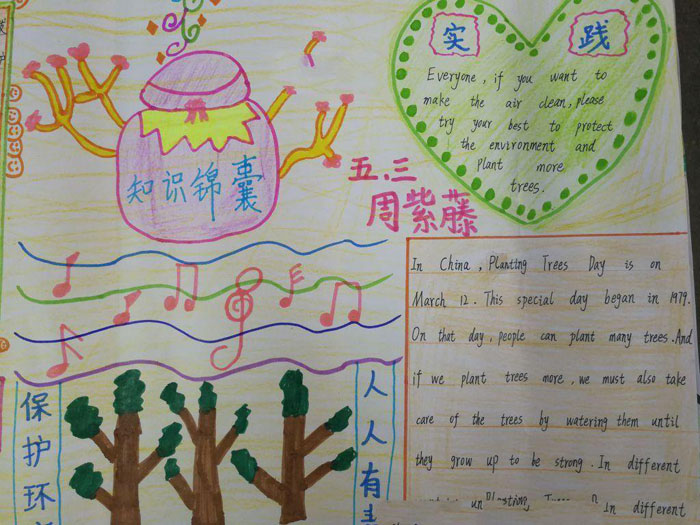 实践
Everyone, if you want to
make the air clean, please
try your best to protect
the environment and
plant more
trees.
知识锦囊
五.三
周紫藤
In China, Planting Trees Day is on
March 12. This special day began in 1979.
On that day, people can plant many trees. And
if we plant trees more, we must also take
care of the trees by watering them until
they grow up to be strong. In different
In different
保护环
人人有